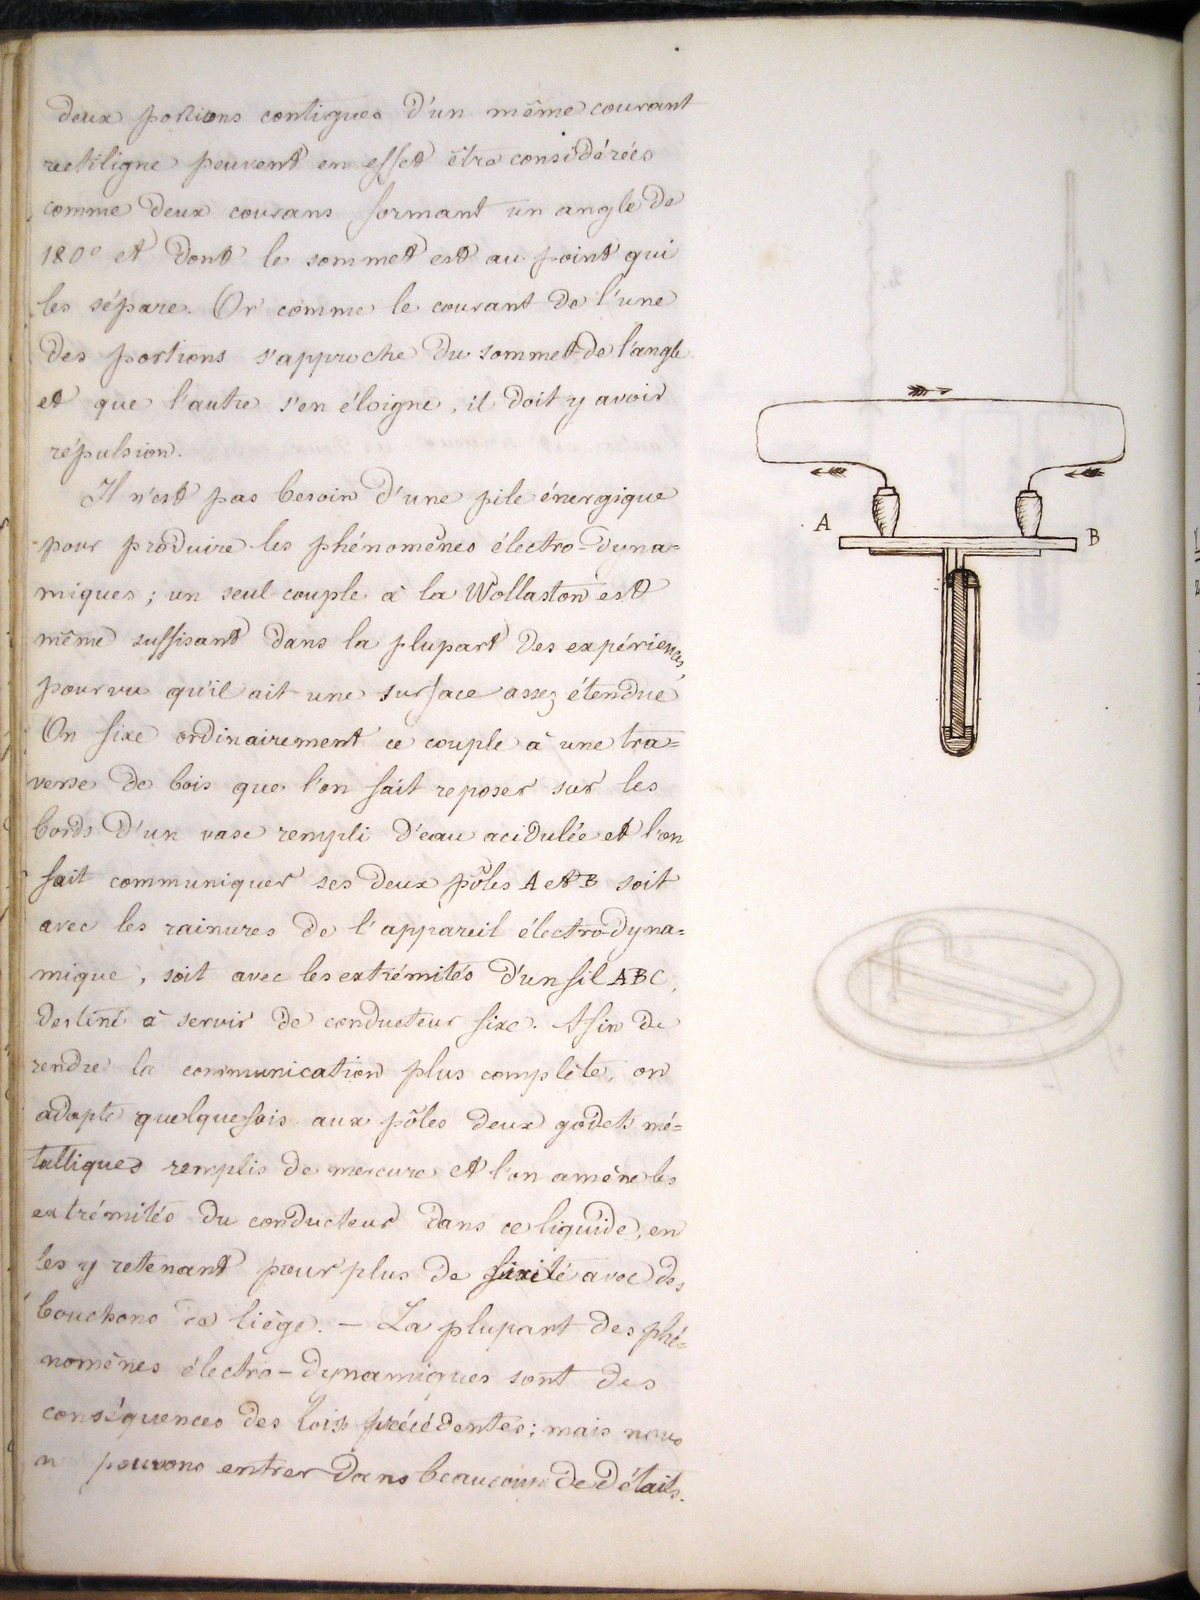 deux portions contigues d'un même courant
rectiligne peuvent en effet être considérées
comme deux courans formant un angle de
180° et dont le sommet est au point qui
les sépare. Or comme le courant de l'une
des portions s'approche du sommet de l'angle
et que l'autre s'en éloigne, il doit y avoir
répulsion.
Il n'est pas besoin d'une pile énergique
pour produire les phénomènes électro-dyna=
miques; un seul couple à la Wollaston est
même suffisant dans la plupart des expériences,
pourvu qu'il ait une surface assez étendue
On fixe ordinairement ce couple à une tra=
verse de bois que l'on fait reposer sur les
bords d'un vase rempli d'eau acidulée et l'on
fait communiquer ses deux pôles A et B soit
avec les rainures de l'appareil électrodyna=
mique, soit avec les extrémités d'un fil ABC,
destiné à servir de conducteur fixe. Afin de
rendre la communication plus complète, on
adapte quelquefois aux pôles deux godets mé=
talliques remplis de mercure et l'on amène les
extrémités du conducteur dans ce liquide, en
les y retenant pour plus de fixité avec des
bouchons de liège. — La plupart des phé=
nomènes électro-dynamiques sont des
conséquences des lois précédentes; mais nous
n pouvons entrer dans beaucoup de détails.
A
B